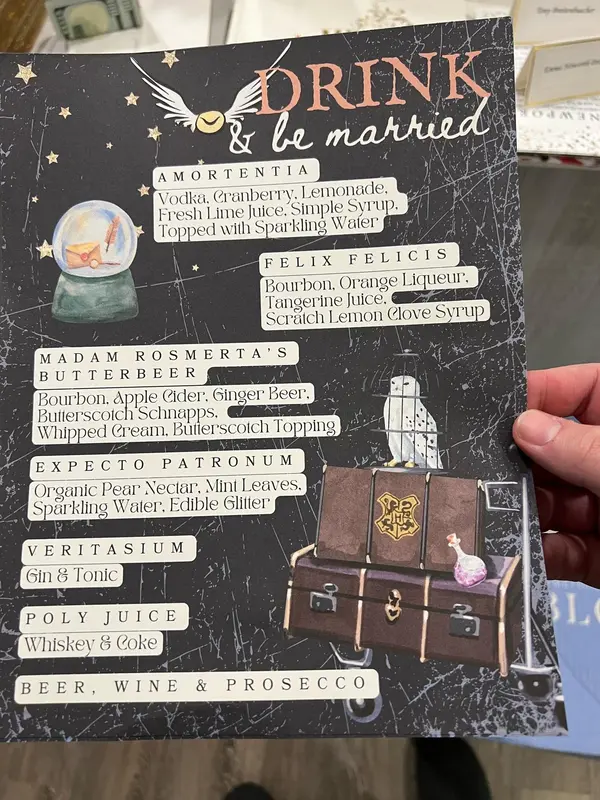 DRINK
& be married
AMORTENTIA
Vodka, Cranberry, Lemonade,
Fresh Lime Juice, Simple Syrup,
Topped with Sparkling Water
FELIX FELICIS
Bourbon, Orange Liqueur,
Tangerine Juice,
Scratch Lemon Clove Syrup
MADAM ROSMERTA'S
BUTTERBEER
Bourbon, Apple Cider, Ginger Beer,
Butterscotch Schnapps,
Whipped Cream, Butterscotch Topping
EXPECTO PATRONUM
Organic Pear Nectar, Mint Leaves,
Sparkling Water, Edible Glitter
VERITASIUM
Gin & Tonic
POLY JUICE
Whiskey & Coke
BEER, WINE & PROSECCO